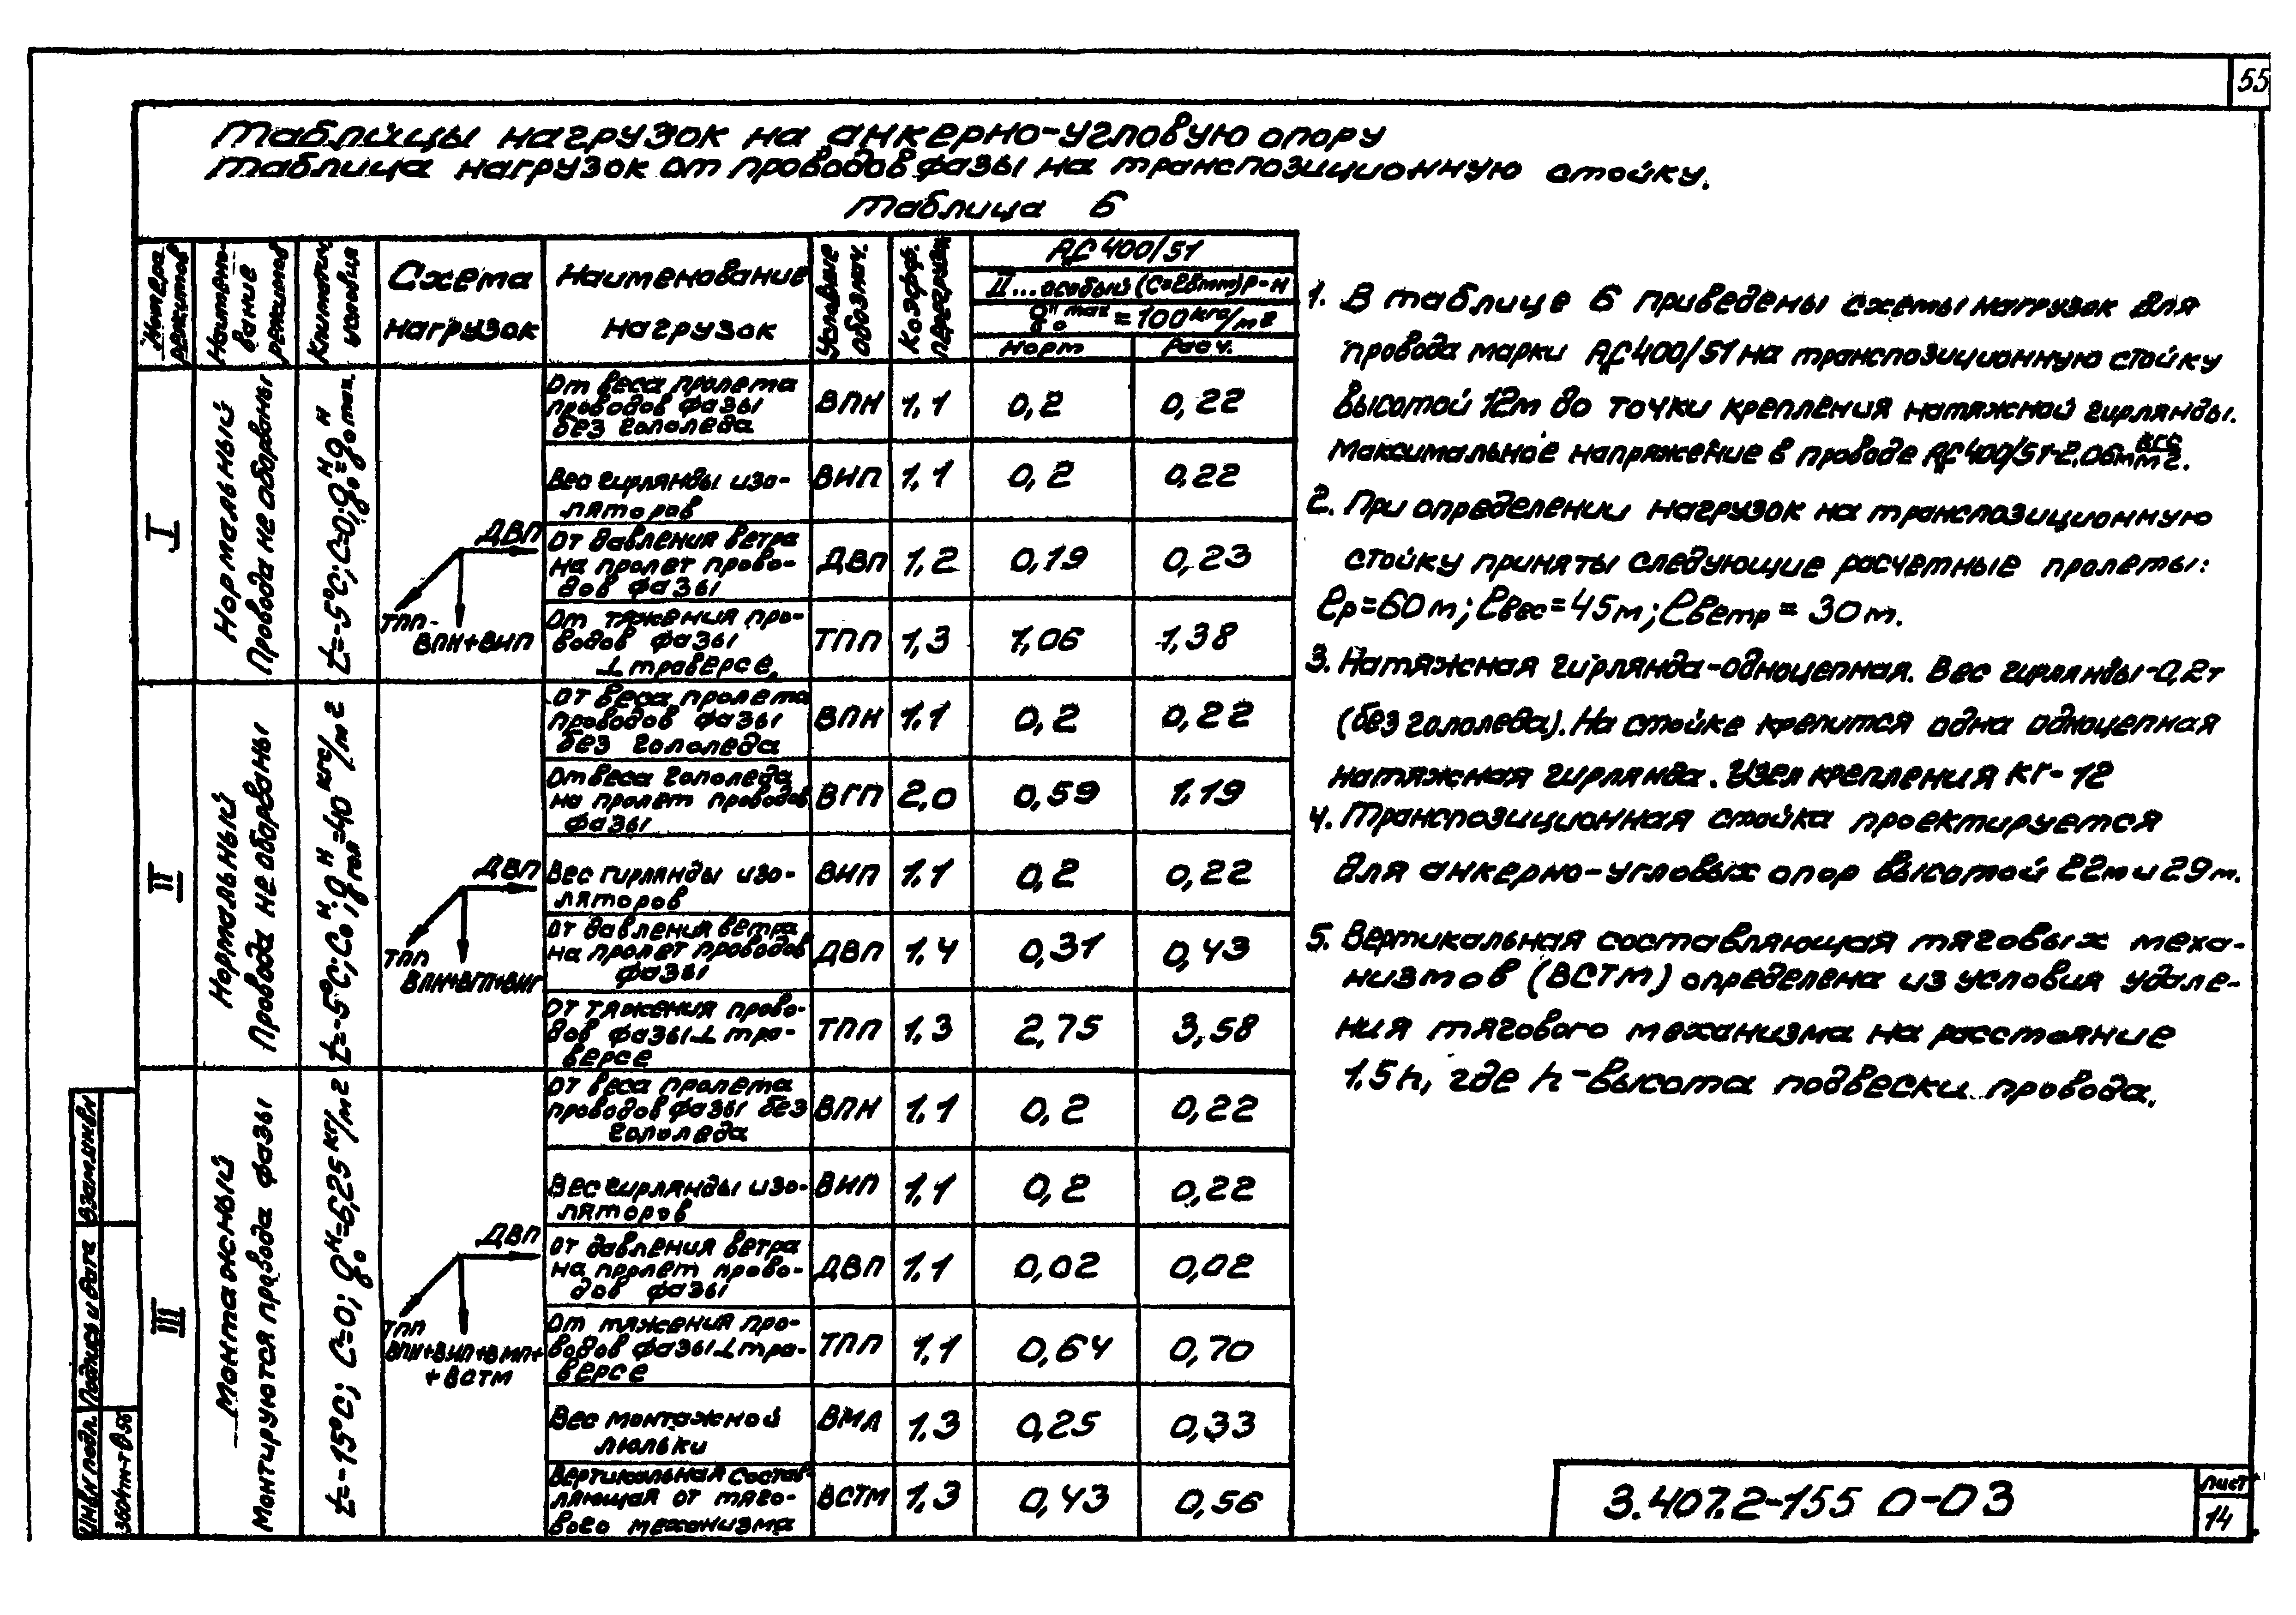 55
Таблицы нагрузок на анкерно-угловую опору
Таблица нагрузок от проводов фазы на транспозиционную стойку.
Таблица 6
Номера режимов
Наимено-вание режимов
Климатич. условия
Схема нагрузок
Наименование нагрузок
Условные обознач.
Коэфф. перегрузки
АС 400/51
II...особый (С=28мм) Р-Н
q₀ᴴ max = 100 кгс/м²
Норм Расч.
I
Нормальный
Провода не оборваны
t=-5°С; С=0; q₀ᴴ=q₀ᴴ max.
ДВП
ТПП-
ВПН+ВИП
От веса пролета
проводов фазы
без гололеда
ВПН 1,1 0,2 0,22
Вес гирлянды изо-
ляторов
ВИП 1,1 0,2 0,22
От давления ветра
на пролет прово-
дов фазы
ДВП 1,2 0,19 0,23
От тяжения про-
водов фазы
⊥ траверсе.
ТПП 1,3 1,06 1,38
II
Нормальный
Провода не оборваны
t=-5°С; С₀ᴴ; q гол ᴴ=40 кгс/м²
ДВП
ТПП
ВПН+ВГП+ВИГ
От веса пролета
проводов фазы
без гололеда
ВПН 1,1 0,2 0,22
От веса гололеда
на пролет проводов
фазы
ВГП 2,0 0,59 1,19
Вес гирлянды изо-
ляторов
ВИП 1,1 0,2 0,22
От давления ветра
на пролет проводов
фазы
ДВП 1,4 0,31 0,43
От тяжения прово-
дов фазы ⊥ тра-
версе
ТПП 1,3 2,75 3,58
III
Монтажный
Монтируются провода фазы
t=-15°С; С=0; q₀ᴴ=6,25 кг/м²
ДВП
ТПП
ВПН+ВИП+ВМЛ+
+ВСТМ
От веса пролета
проводов фазы без
гололеда
ВПН 1,1 0,2 0,22
Вес гирлянды изо-
ляторов
ВИП 1,1 0,2 0,22
От давления ветра
на пролет прово-
дов фазы
ДВП 1,1 0,02 0,02
От тяжения про-
водов фазы ⊥ тра-
версе
ТПП 1,1 0,64 0,70
Вес монтажной
люльки
ВМЛ 1,3 0,25 0,33
Вертикальная состав-
ляющая от тяго-
вого механизма
ВСТМ 1,3 0,43 0,56
1. В таблице 6 приведены схемы нагрузок для
провода марки АС400/51 на транспозиционную стойку
высотой 12м до точки крепления натяжной гирлянды.
Максимальное напряжение в проводе АС400/51-2,06 кгс/мм².
2. При определении нагрузок на транспозиционную
стойку приняты следующие расчетные пролеты:
ℓр=60м; ℓвес=45м; ℓветр = 30м.
3. Натяжная гирлянда-одноцепная. Вес гирлянды-0,2т
(без гололеда). На стойке крепится одна одноцепная
натяжная гирлянда. Узел крепления КГ-12
4. Транспозиционная стойка проектируется
для анкерно-угловых опор высотой 22м и 29м.
5. Вертикальная составляющая тяговых меха-
низмов (ВСТМ) определена из условия удале-
ния тягового механизма на расстояние
1.5h, где h-высота подвески провода.
Инв.№ подл. Подпись и дата Взам.инв.№
3.407.2-155 0-03
Лист
14